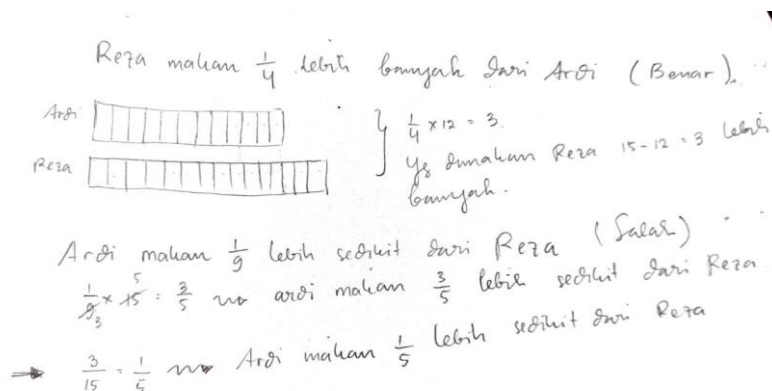 Reza makan 1/4 lebih banyak dari Ardi (Benar).
Ardi
1/4 x 12 = 3.
Reza
yg dimakan Reza 15-12 = 3 lebih
banyak.
Ardi makan 1/9 lebih sedikit dari Reza (Salah)
1/9 3 x 15 5 = 3/5 ardi makan 3/5 lebih sedikit dari Reza
→ 3/15 = 1/5 Ardi makan 1/5 lebih sedikit dari Reza